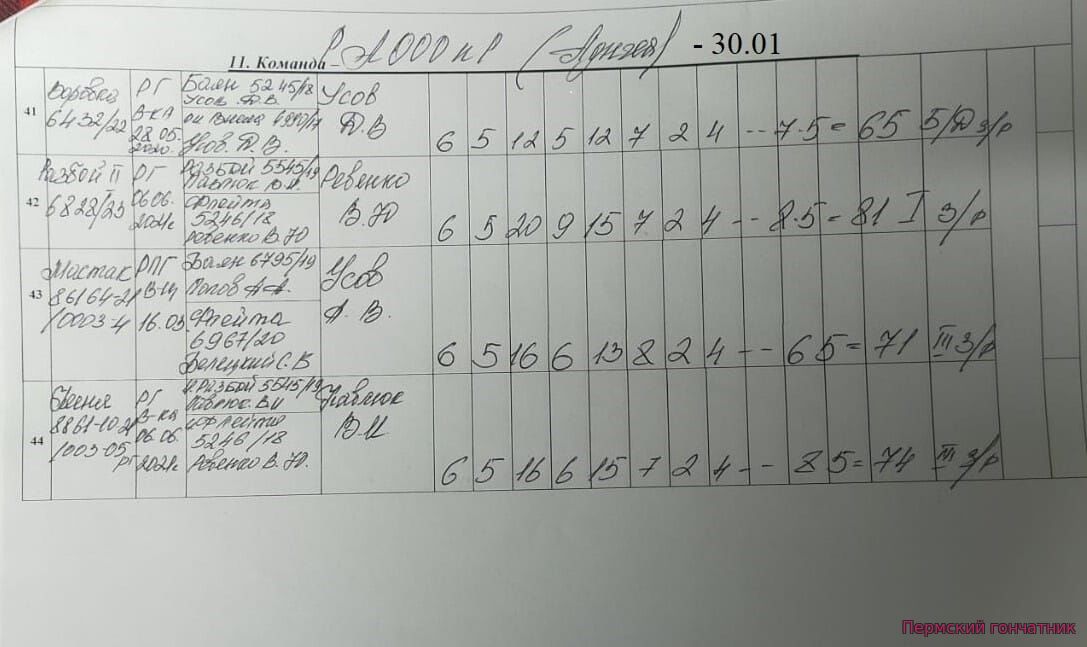 11. Команда – РАООО и Р - 30.01
41 РГ Баян 5245/18 Усов
6432/22 В-ка Усов Д.В. Д.В 6 5 12 5 12 7 2 4 -- 7·5= 65 5/Д з/р
28.05. 6990/17
2020г. Усов Д.В.
42 Разбой II РГ Разбой 5545/19 Ревенко
6828/23 06.06. Павлюк В.И. В.Ю 6 5 20 9 15 7 2 4 -- 8·5= 81 I з/р
2021г Флейта
5246/18
Ревенко В.Ю
43 Мастак РПГ Баян 6795/19 Усов
86164-21 Попов А.А. А. В.
/0003-4 16.03 Флейта 6 5 16 6 13 8 2 4 -- 6 5= 71 III з/р
6967/20
Белецкий С.В
44 РГ Разбой 5545/19 Павлюк
8861-10 21 В-ка Павлюк В.И В.И
/003-05 06.06. Флейта
рг 2021г 5246/18 6 5 16 6 15 7 2 4 -- 8 5= 74 III з/р
Ревенко В.Ю.
Пермский гончатник